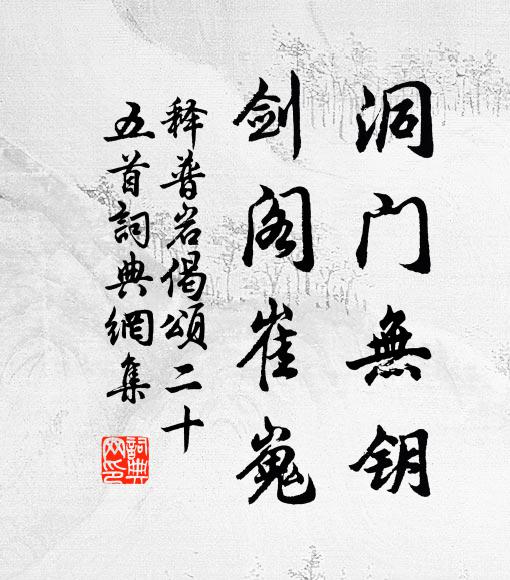 洞门無钥
剑阁崔嵬
释普岩偈颂二十
五首詞典網集
詞典
网印